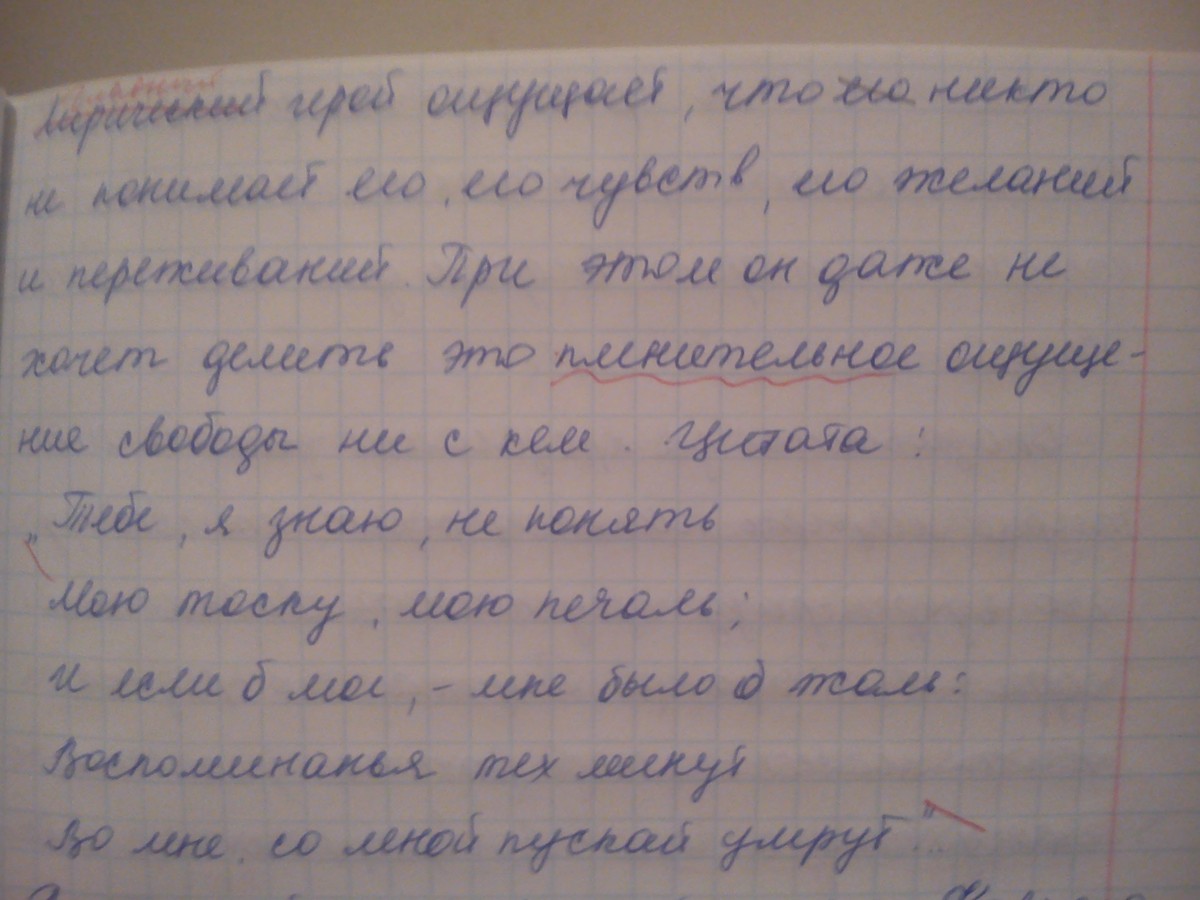 Главный
Лирический герой ощущает, что его никто
не понимает его, его чувств, его желаний
и переживаний. При этом он даже не
хочет делить это пленительное ощуще-
ние свободы ни с кем. Цитата:
„Тебе, я знаю, не понять
Мою тоску, мою печаль;
И если б мог, – мне было б жаль:
Воспоминанья тех минут
Во мне, со мной пускай умрут..."